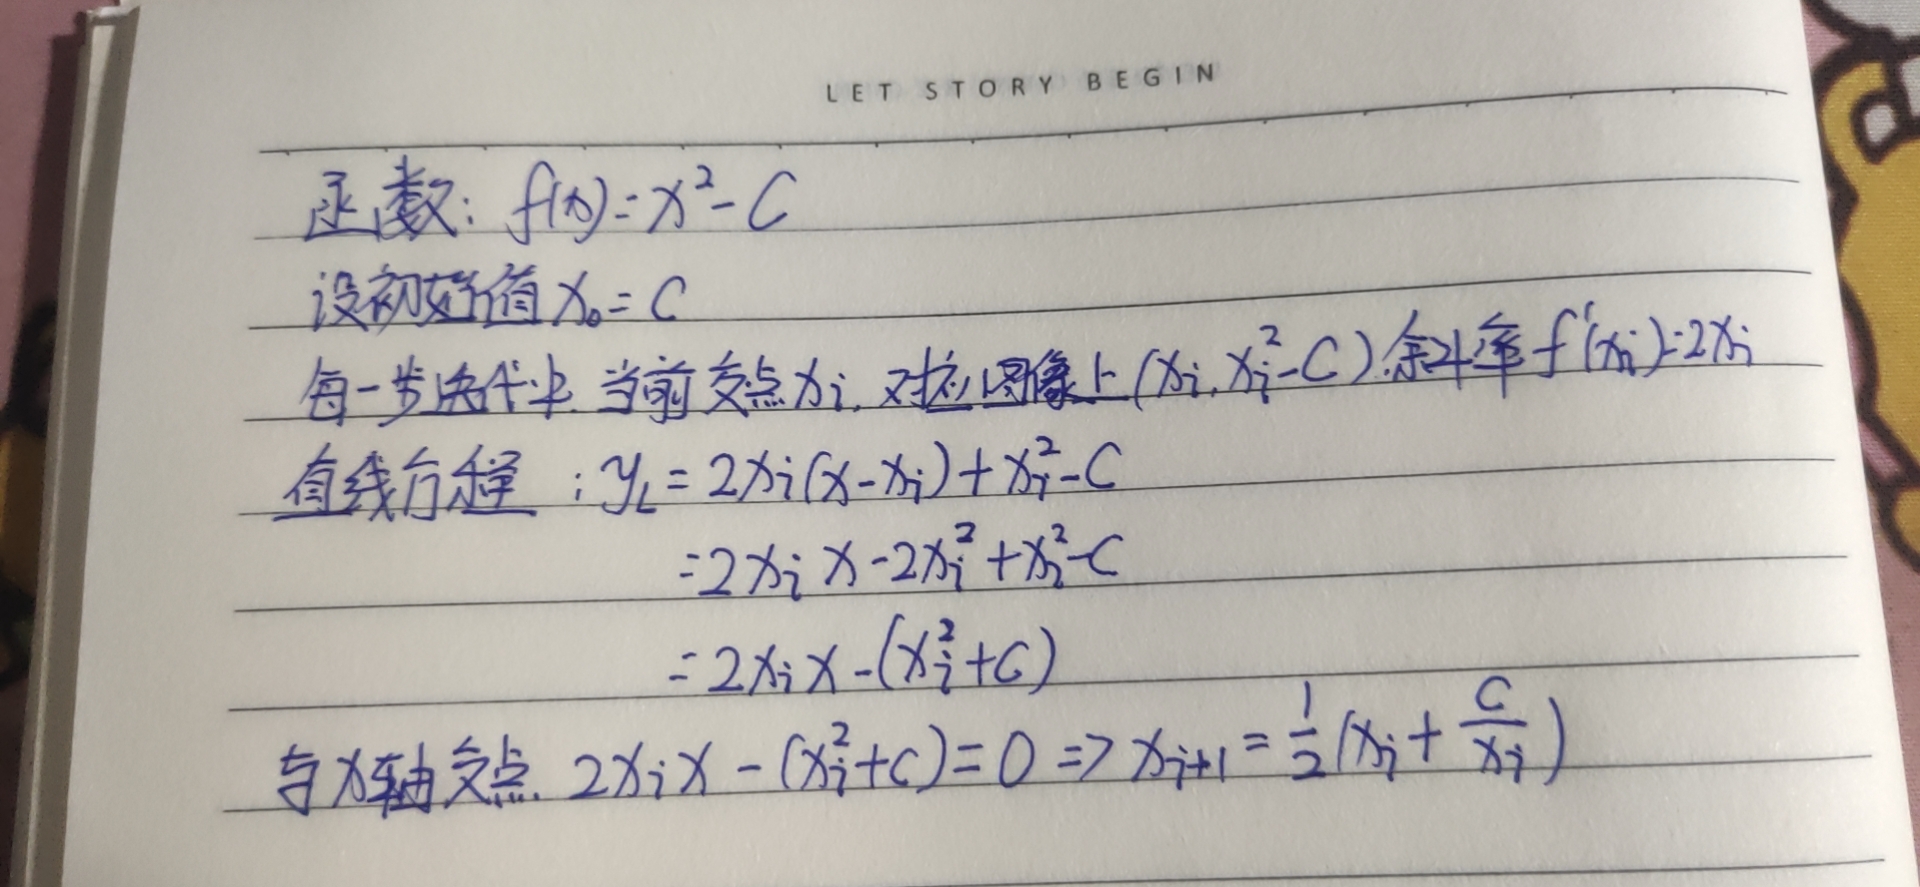 LET STORY BEGIN
函数: f(x)=x²-C
设初始值 x₀=C
每一步迭代中, 当前交点xᵢ, 对应图像上(xᵢ, xᵢ²-C).斜率f'(xᵢ)=2xᵢ
直线方程: y_L=2xᵢ(x-xᵢ)+xᵢ²-C
=2xᵢx-2xᵢ²+xᵢ²-C
=2xᵢx-(xᵢ²+C)
与x轴交点. 2xᵢx-(xᵢ²+C)=0 => xᵢ₊₁=½(xᵢ+C/xᵢ)